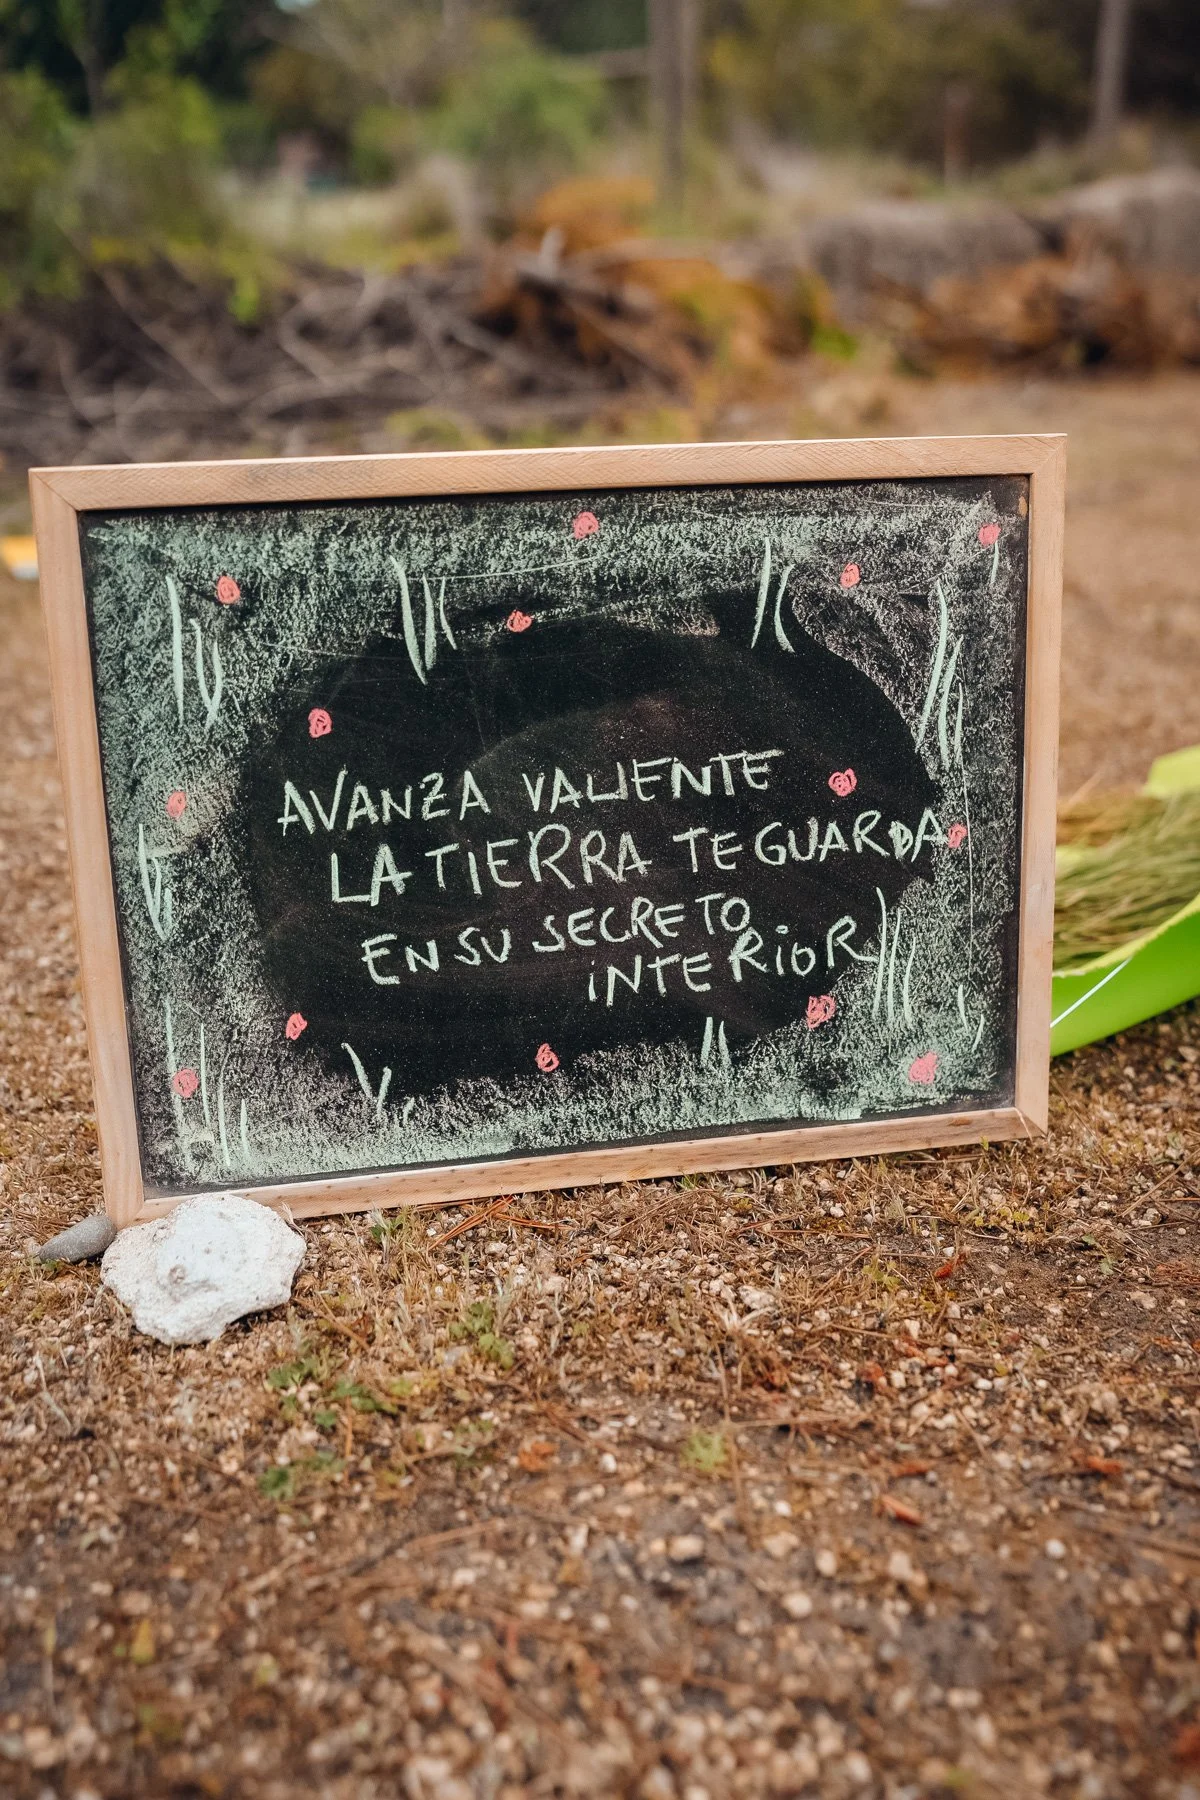 AVANZA VALIENTE
LA TIERRA TE GUARDA
EN SU SECRETO
INTERIOR